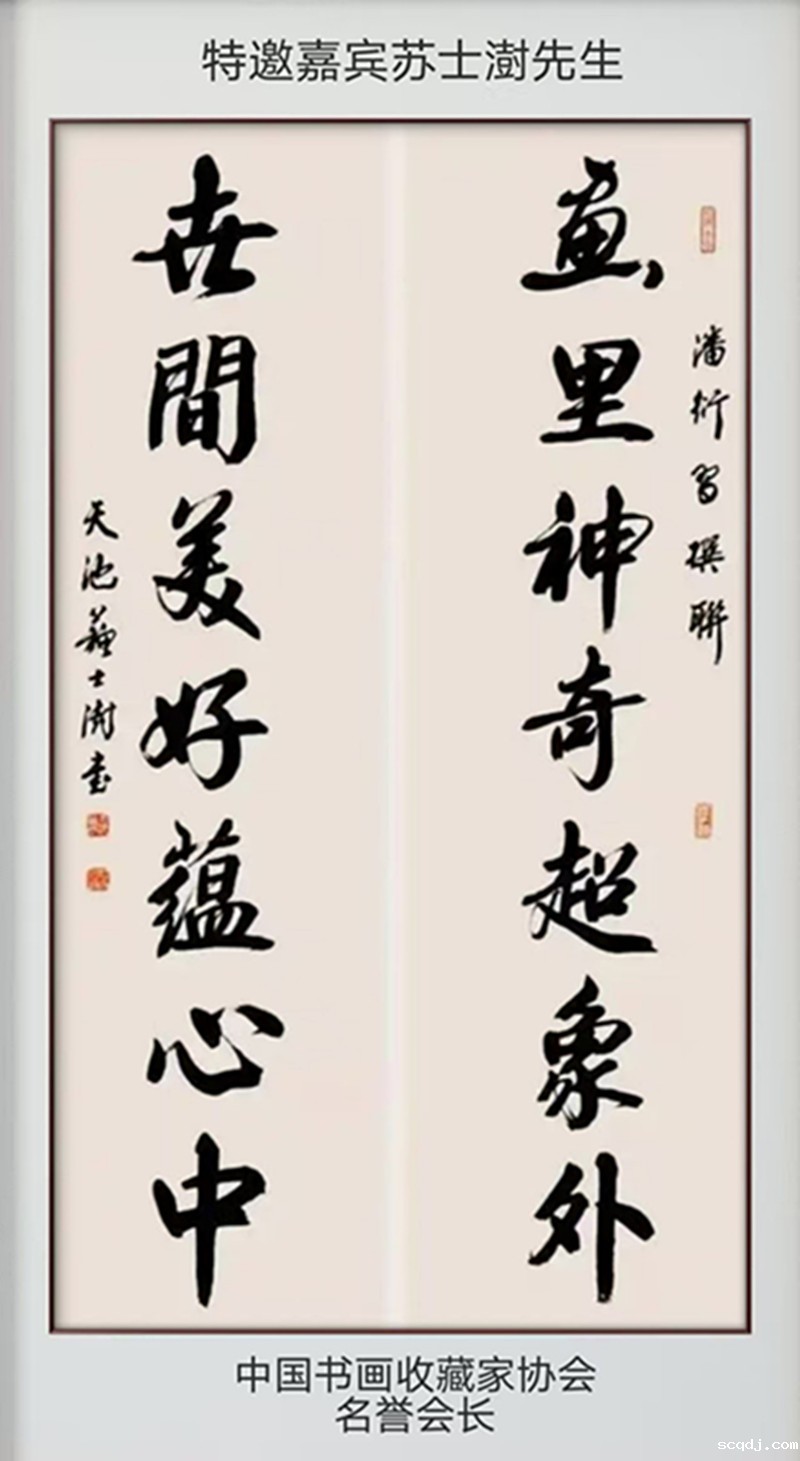 特邀嘉宾苏士澍先生
潘衍習撰聯
畫里神奇超象外
世間美好蘊心中
天池蘇士澍書
中国书画收藏家协会
名誉会长
scqdj.com